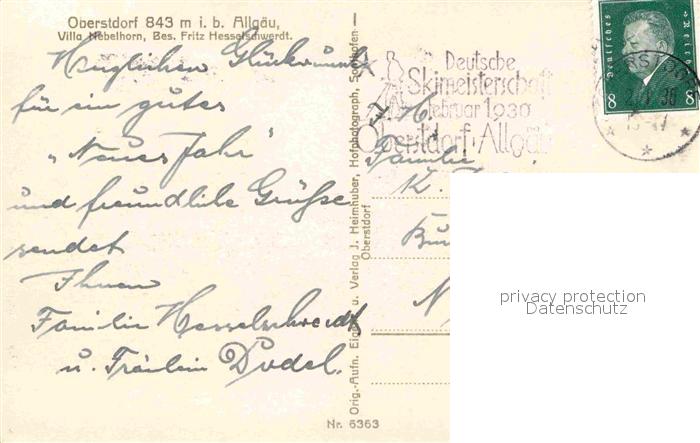 Oberstdorf 843 m i. b. Allgäu,
Villa Nebelhorn, Bes. Fritz Hesselschwerdt.
Herzlichen Glückwunsch
für ein gutes
„Neues Jahr"
und freundliche Grüße
sendet
Ihnen
Familie Hesselschwerdt
u. Fräulein Dodel.
Orig.-Aufn. Eigent. u. Verlag J. Heimhuber, Hofphotograph, Sonthofen-
Oberstdorf
Deutsche
Skimeisterschaft
Februar 1930
Oberstdorf-Allgäu
Deutsches Reich
8 8
Familie
K.
N
privacy protection
Datenschutz
Nr. 6363